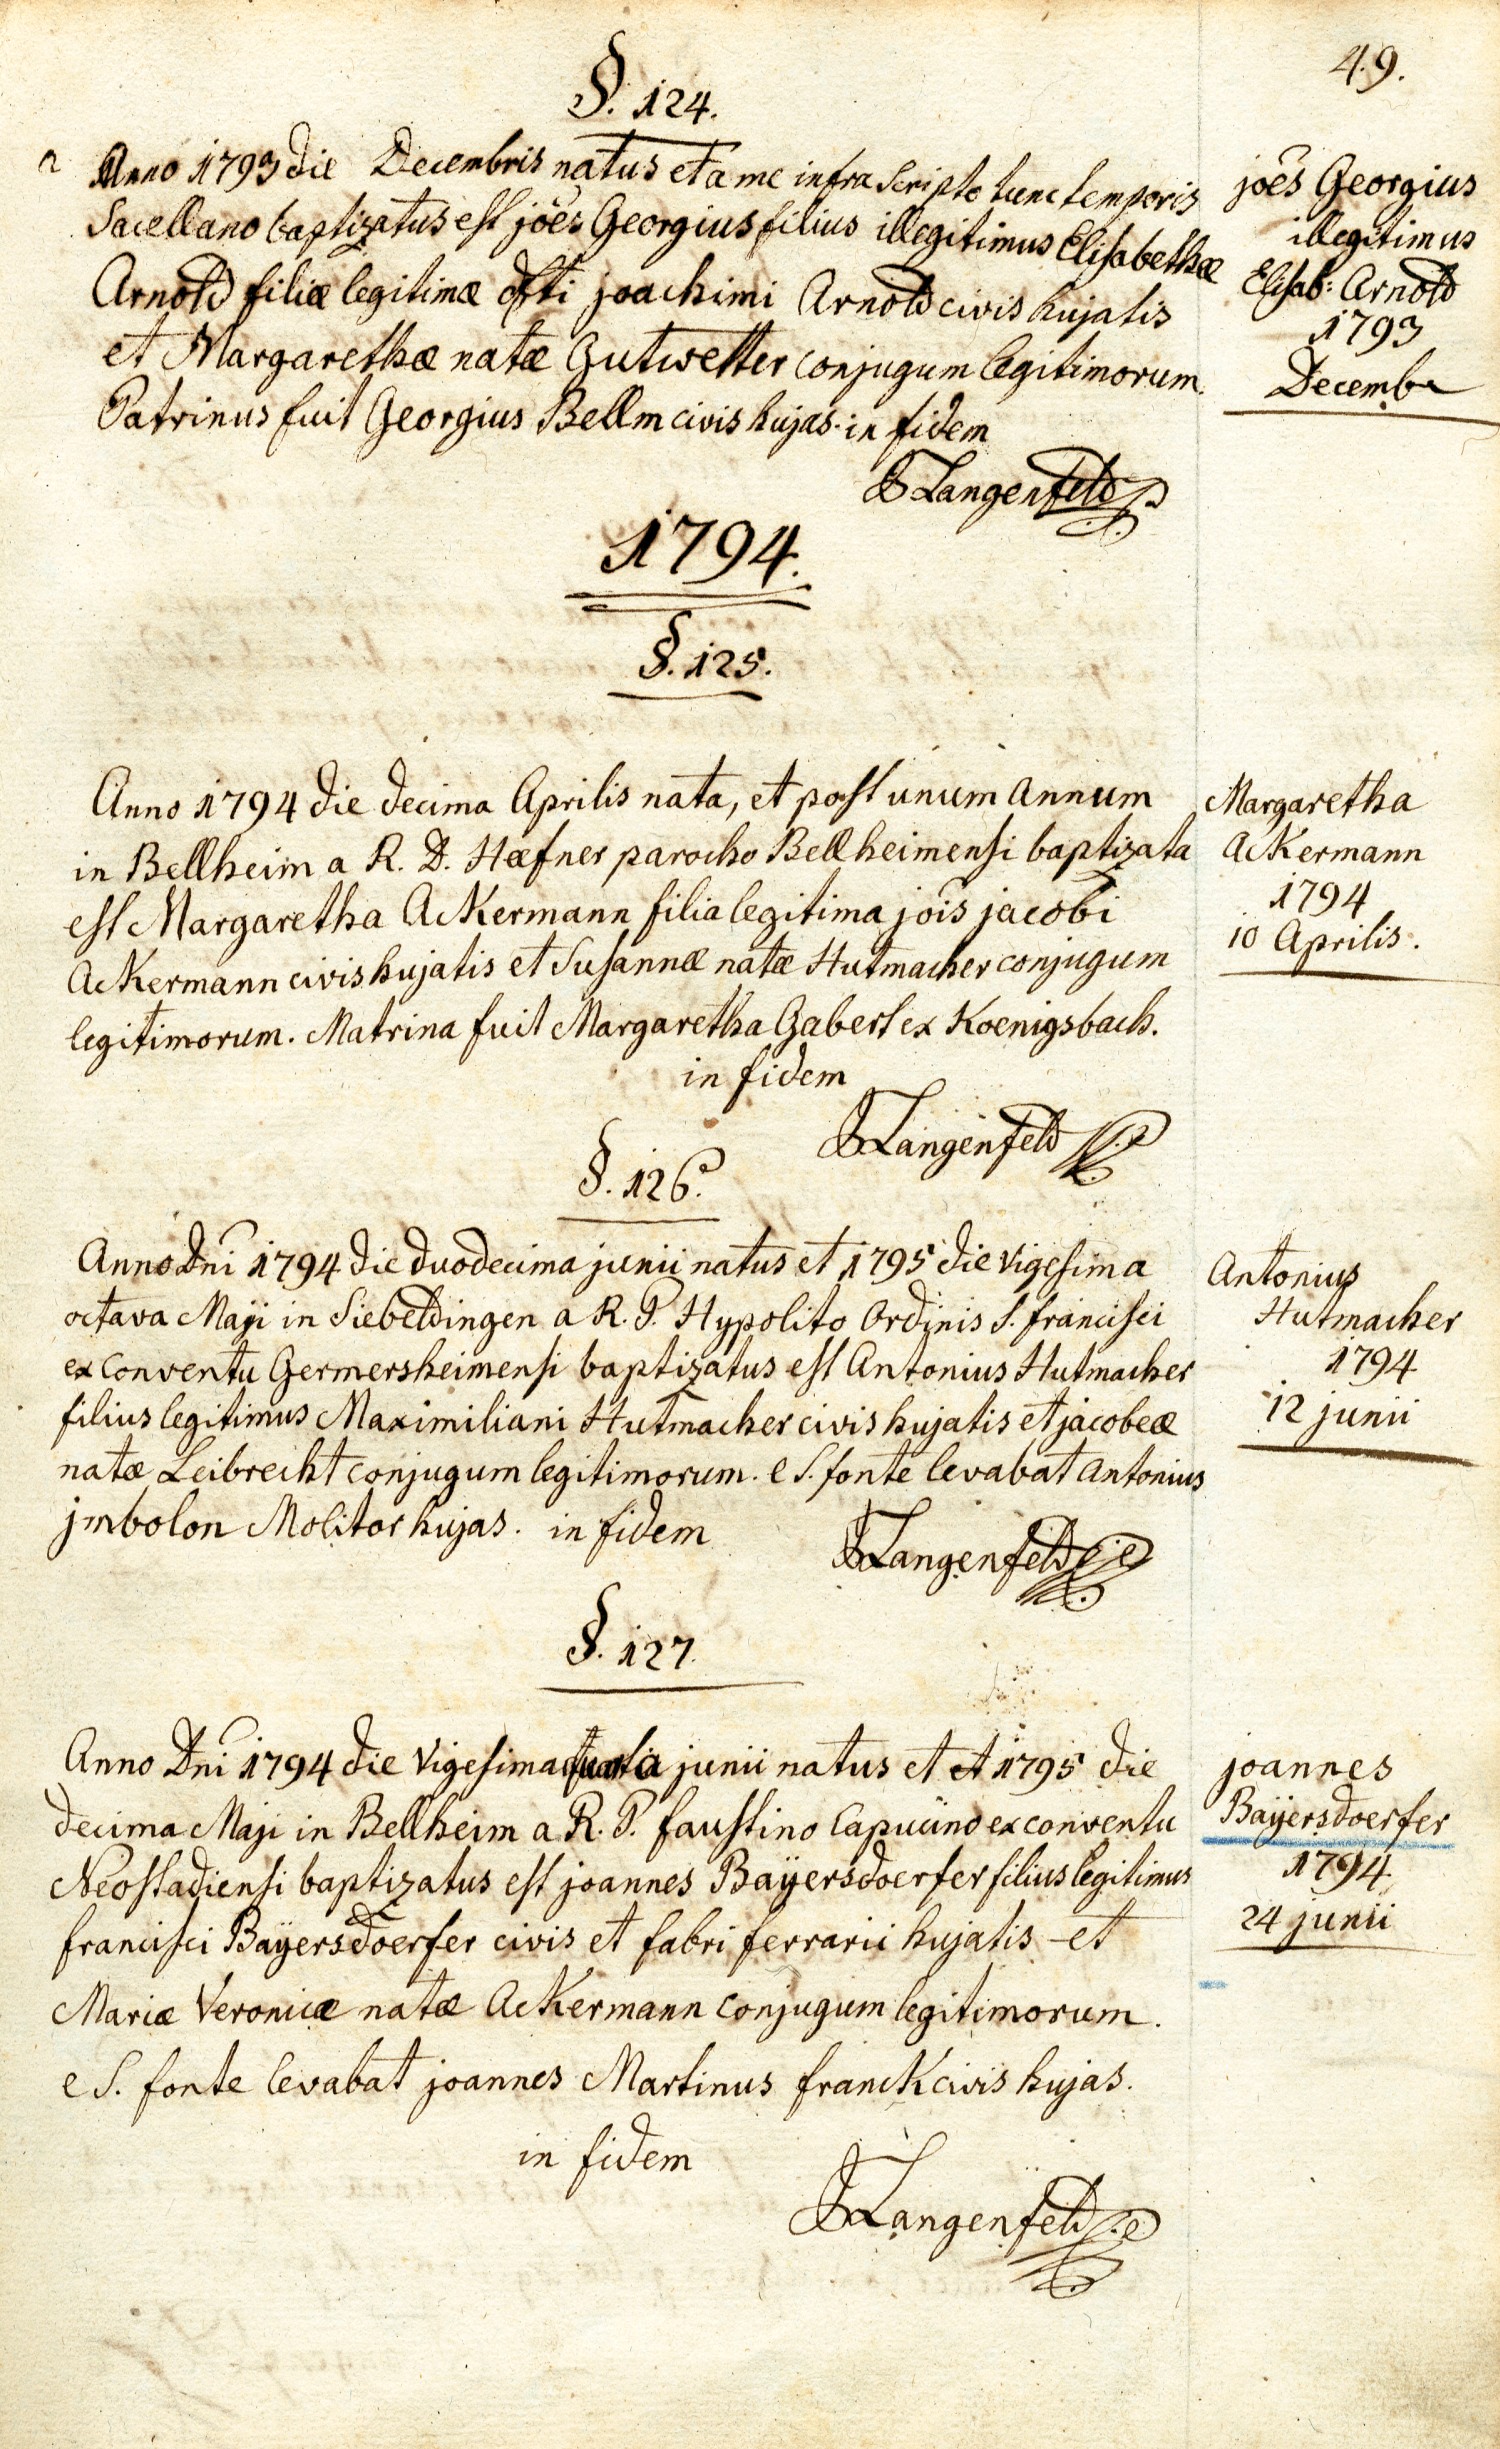 49.
§. 124.
Anno 1793 die Decembris natus et a me infra scripto tunc temporis
Sacellano baptizatus est joës Georgius filius illegitimus Elisabethæ
Arnold filiæ legitimæ dfti joachimi Arnold civis hujatis
et Margarethæ natæ Gutwetter conjugum legitimorum.
Patrinus fuit Georgius Bellm civis hujas. in fidem
Langenfeld
joës Georgius
illegitimus
Elisab: Arnold
1793
Decembr
1794.
§. 125.
Anno 1794 die decima Aprilis nata, et post unum annum
in Bellheim a R. D. Hæfner parocho Bellheimensi baptizata
est Margaretha Ackermann filia legitima jois jacobi
Ackermann civis hujatis et Susannæ natæ Hutmacher conjugum
legitimorum. Matrina fuit Margaretha Gabert ex Koenigsbach.
in fidem
Langenfeld
Margaretha
Ackermann
1794
10 Aprilis.
§. 126.
Anno Dni 1794 die duodecima junii natus et 1795 die vigesima
octava Maji in Siebeldingen a R. P. Hypolito Ordinis S. francisci
ex Conventu Germersheimensi baptizatus est Antonius Hutmacher
filius legitimus Maximiliani Hutmacher civis hujatis et jacobeæ
natæ Leibrecht conjugum legitimorum. e S. fonte levabat Antonius
jmbolon Molitor hujas. in fidem
Langenfeld
Antonius
Hutmacher
1794
12 junii
§. 127.
Anno Dni 1794 die vigesima quarta junii natus et et 1795 die
decima Maji in Bellheim a R. P. faustino Capucino ex conventu
Neostadiensi baptizatus est joannes Baÿersdoerfer filius legitimus
francisci Baÿersdoerfer civis et fabri ferrarii hujatis et
Mariæ Veronicæ natæ Ackermann conjugum legitimorum.
e S. fonte levabat joannes Martinus franck civis hujas.
in fidem
Langenfeld
joannes
Baÿersdoerfer
1794.
24 junii